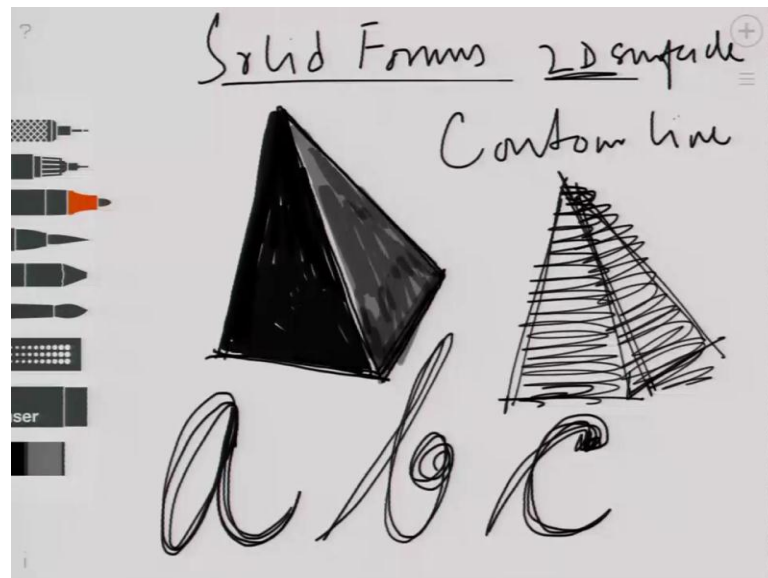 ?
Solid Forms 2D surface
Contour line
ser
a b c
i